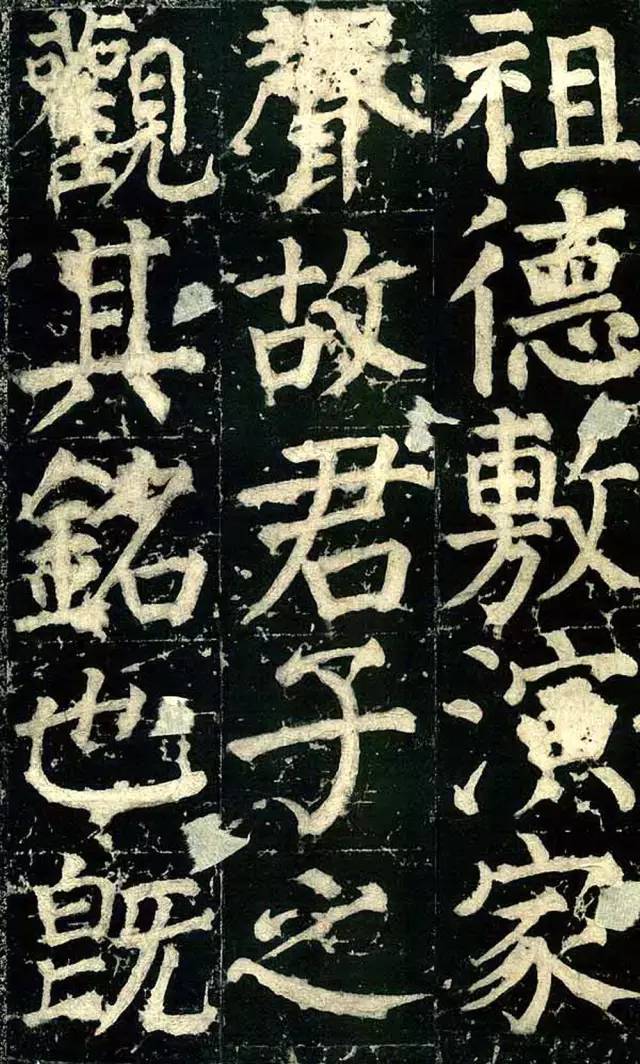 祖德敷演家
聲故君子之
觀其銘也旣